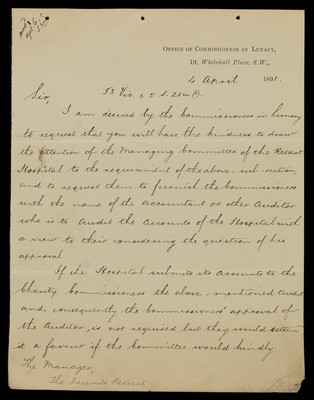 OFFICE OF COMMISSIONERS IN LUNACY,
19, Whitehall Place, S.W.,
4 April 1891.
53 Vic. c 5 S. 234 (1).
Sir,
I am desired by the Commissioners in Lunacy
to request that you will have the kindness to draw
the attention of the Managing Committee of the Retreat
Hospital to the requirement of the above sub-section,
and to request them to furnish the Commissioners
with the name of the accountant or other Auditor
who is to audit the accounts of the Hospital with
a view to their considering the question of his
approval.
If the Hospital submits its accounts to the
Charity Commissioners the above-mentioned audit
and, consequently the Commissioners' approval of
the Auditor is not required, but they would esteem
it a favour if the Committee would kindly
The Manager,
The Friends Retreat